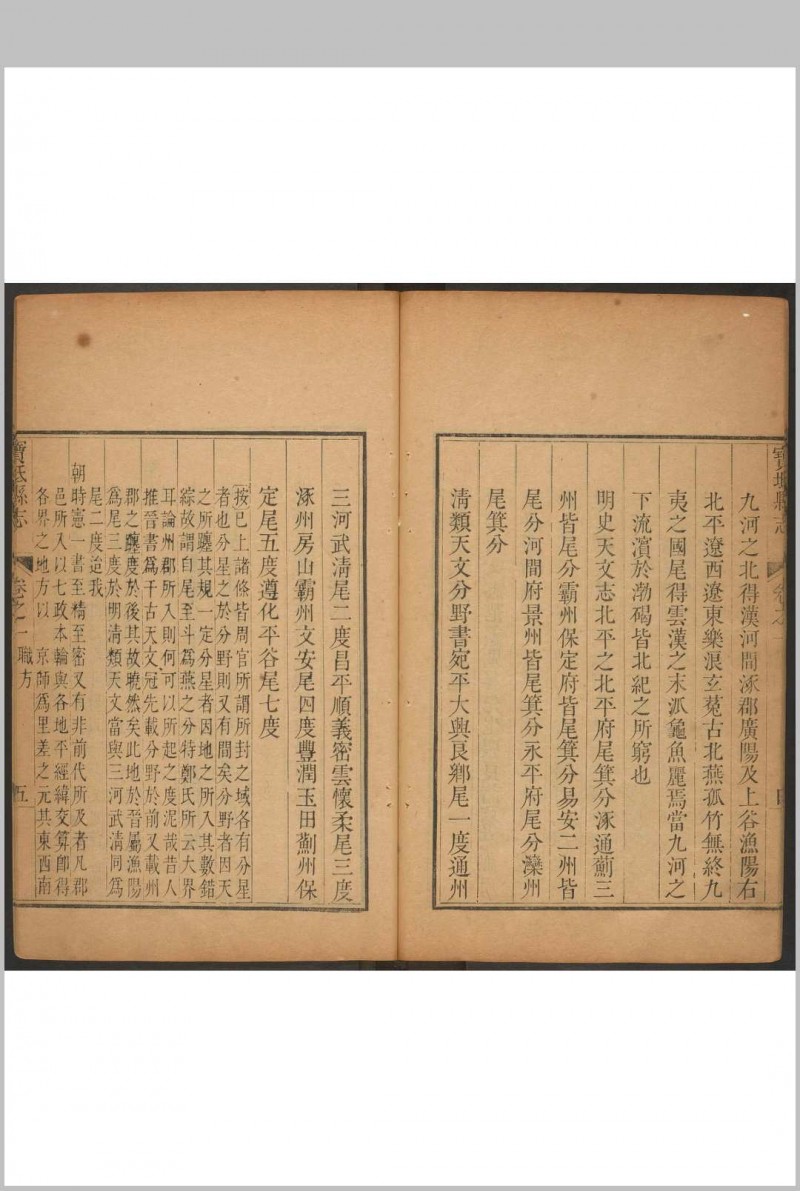 九河之北得漢河間涿郡廣陽及上谷漁陽右
北平遼西遼東樂浪玄菟古北燕孤竹無終九
夷之國尾得雲漢之末派龜魚麗焉當九河之
下流濱於渤碣皆北紀之所窮也
明史天文志北平之北平府尾箕分涿通薊三
州皆尾分霸州保定府皆尾箕分易安二州皆
尾分河間府景州皆尾箕分永平府尾分灤州
尾箕分
清類天文分野書宛平大興良鄉尾一度通州
三河武清尾二度昌平順義密雲懷柔尾三度
涿州房山霸州文安尾四度豐潤玉田薊州保
定尾五度遵化平谷尾七度
按已上諸條皆周官所謂所封之域各有分星
者也分星之於分野則又有間矣分野者因天
之所躔其規一定分星者因地之所入其數錯
綜故謂自尾至斗爲燕之分特鄭氏所云大界
耳論州郡所入則何可以所起之度泥哉昔人
推晉書爲千古天文冠先載分野於前又載州
郡之躔度於後其故曉然矣此地於晉屬漁陽
爲尾三度於明清類天文當與三河武清同爲
尾二度迨我
朝時憲一書至精至密又有非前代所及者凡郡
邑所入以七政本輪與各地平經緯交算卽得
各界之地方以 京師爲里差之元其東西南
寶坻縣志 卷之一 職方 五